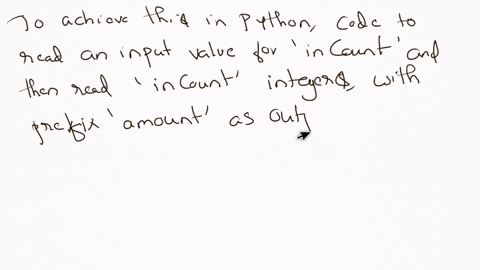 To achieve this in python, code to
read an input value for 'inCount' and
then read 'inCount' integers, with
prefix 'amount' as out